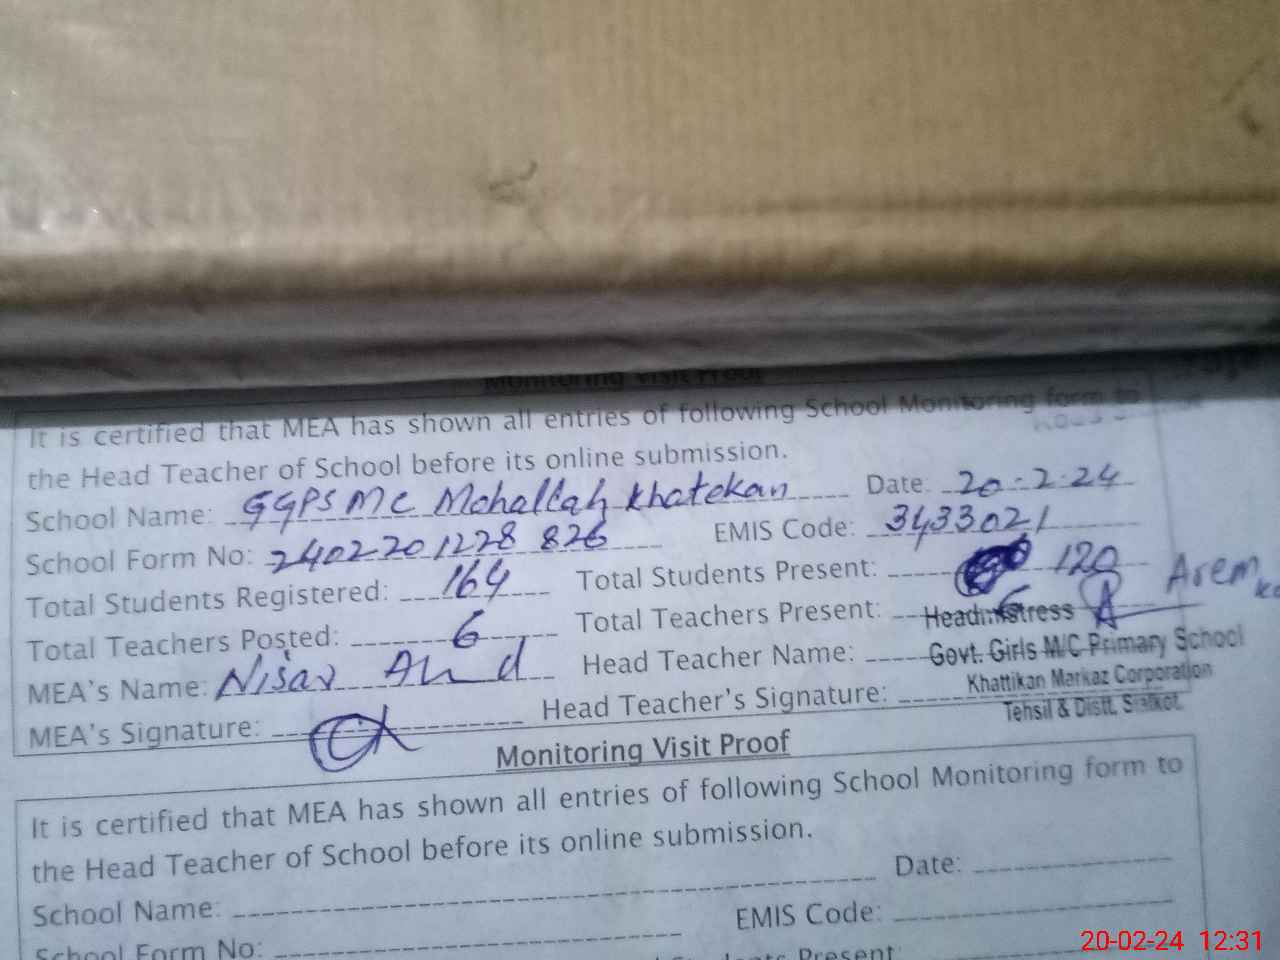 Monitoring Visit Proof
It is certified that MEA has shown all entries of following School Monitoring form to
the Head Teacher of School before its online submission.
School Name: GGPS MC Mohallah Khatekan Date: 20-2-24
School Form No: 2402201228 826 EMIS Code: 3433021
Total Students Registered: 164 Total Students Present: 120
Total Teachers Posted: 6 Total Teachers Present: 6
MEA's Name: Nisar Ahd Head Teacher Name: Headmistress
Govt. Girls M/C Primary School
MEA's Signature: Head Teacher's Signature: Khattikan Markaz Corporation
Tehsil & Distt. Sialkot.
Monitoring Visit Proof
It is certified that MEA has shown all entries of following School Monitoring form to
the Head Teacher of School before its online submission.
School Name: Date:
School Form No: EMIS Code:
Students Present:
20-02-24 12:31